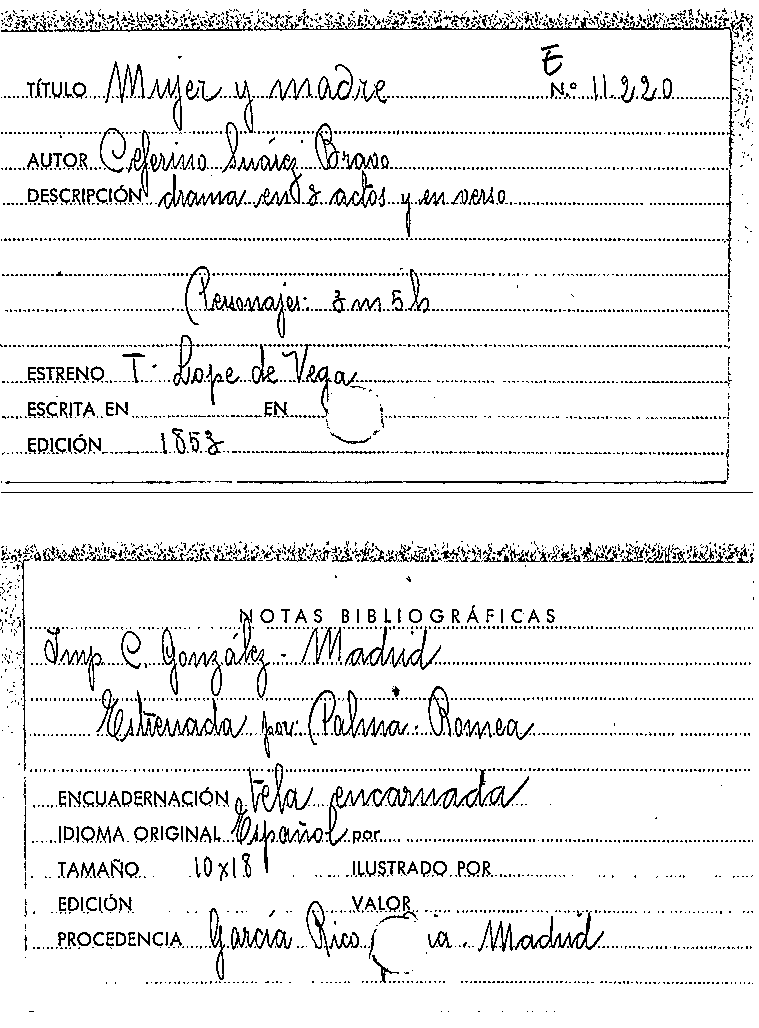 E
TÍTULO Mujer y madre N.º 11.220
AUTOR Ceferino Suárez Bravo
DESCRIPCIÓN drama en 3 actos y en verso
Personajes: 3 m 5 h
ESTRENO T. Lope de Vega
ESCRITA EN EN
EDICIÓN 1853
NOTAS BIBLIOGRÁFICAS
Imp C. González - Madrid
Estrenada por: Palma - Romea
ENCUADERNACIÓN tela encarnada
IDIOMA ORIGINAL Español por
TAMAÑO 10x18 ILUSTRADO POR
EDICIÓN VALOR
PROCEDENCIA García Rico ia. Madrid